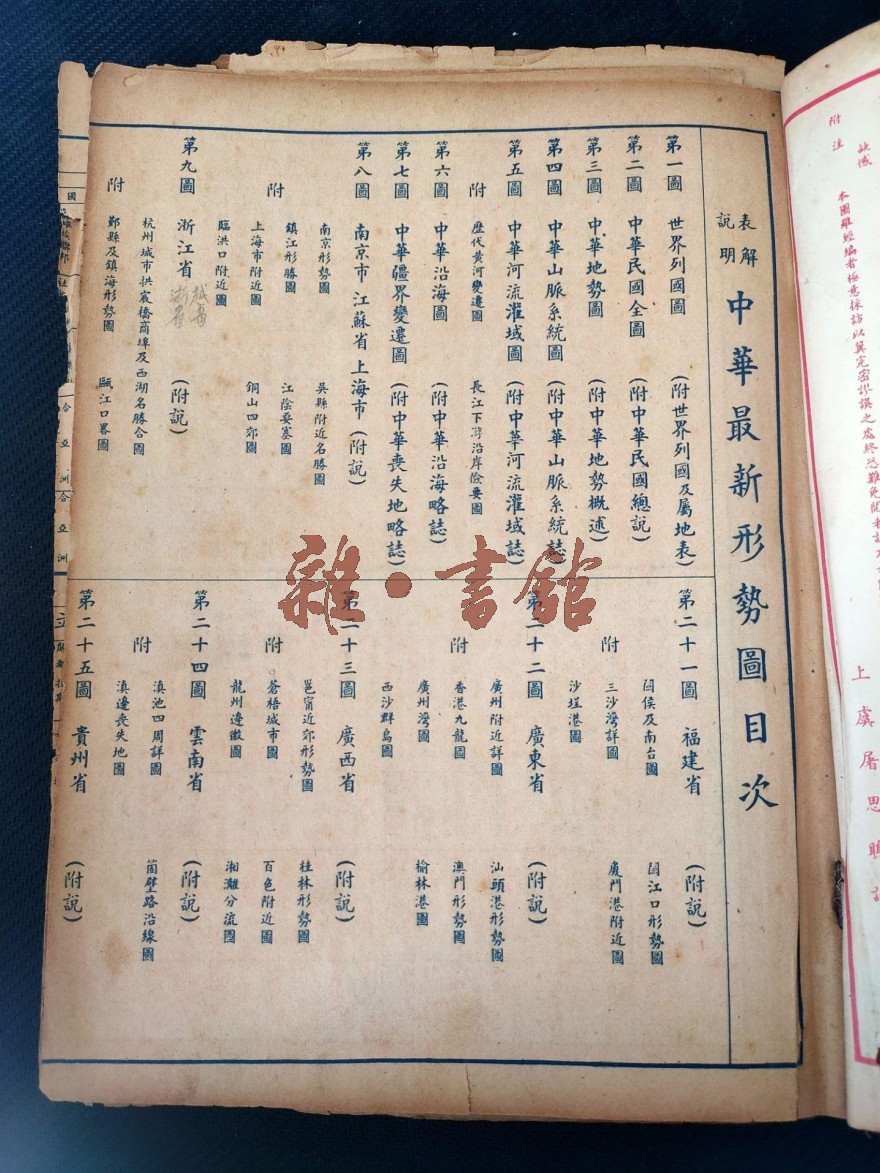 表解
說明
中華最新形勢圖目次
第一圖 世界列國圖 (附世界列國及屬地表)
第二圖 中華民國全圖 (附中華民國總說)
第三圖 中華地勢圖 (附中華地勢概述)
第四圖 中華山脈系統圖 (附中華山脈系統誌)
第五圖 中華河流灌域圖 (附中華河流灌域誌)
附 歷代黃河變遷圖 長江下游沿岸險要圖
第六圖 中華沿海圖 (附中華沿海略誌)
第七圖 中華疆界變遷圖 (附中華喪失地略誌)
第八圖 南京市 江蘇省 上海市 (附說)
南京形勢圖 吳縣附近名勝圖
鎮江形勝圖 江陰要塞圖
附
上海市附近圖 銅山四郊圖
臨洪口附近圖
第九圖 浙江省 (附說)
杭州城市拱宸橋商埠及西湖名勝合圖
附
鄞縣及鎮海形勢圖 甌江口略圖
第二十一圖 福建省 (附說)
閩侯及南台圖 閩江口形勢圖
附
三沙灣詳圖 廈門港附近圖
沙埕港圖
第二十二圖 廣東省 (附說)
廣州附近詳圖 汕頭港形勢圖
附
香港九龍圖 澳門形勢圖
廣州灣圖 榆林港圖
西沙群島圖
第二十三圖 廣西省 (附說)
邕甯近郊形勢圖 桂林形勢圖
附
蒼梧城市圖 百色附近圖
龍州邊徼圖 湘灕分流圖
第二十四圖 雲南省 (附說)
滇池四周詳圖 箇壁路沿線圖
附
滇邊喪失地圖
第二十五圖 貴州省 (附說)
雜·書館
附注
本圖雖經編者極意採訪以冀完密謬誤之處終恐難免閱者
上虞屠思聰